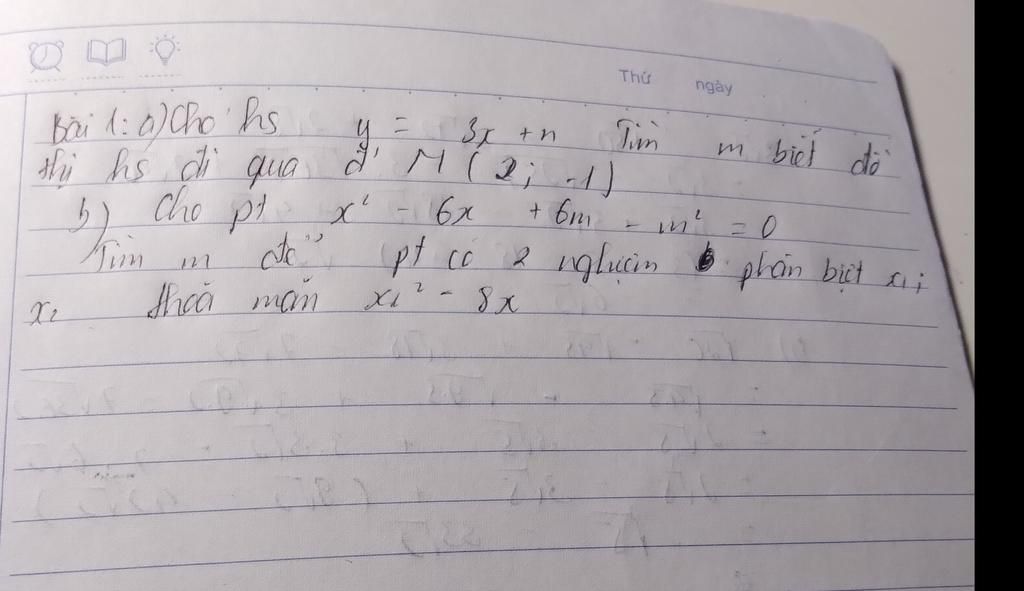 Thứ ngày
Bài 1: a) Cho hs y = 3x + n Tìm m biết đồ
thị hs đi qua đ' M (2; -1)
b) Cho pt x² - 6x + 6m - m² = 0
Tìm m để pt có 2 nghiệm phân biệt x₁;
x₂ thoả mãn x₁² - 8x